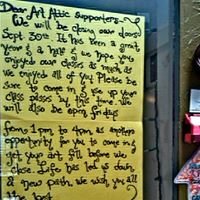 Dear Art Attic supporters~
We will be closing our doors
Sept 30th. It has been a great
year & a half & we hope you
enjoyed our classes as much as
we enjoyed all of you. Please be
sure to come in & use up your
class passes by this time. We
will also be open fridays
from 1pm to 4pm as another
opportunity for you to come in &
get your art fill before we
close. Life has led us down
a new path. We wish you all
the best